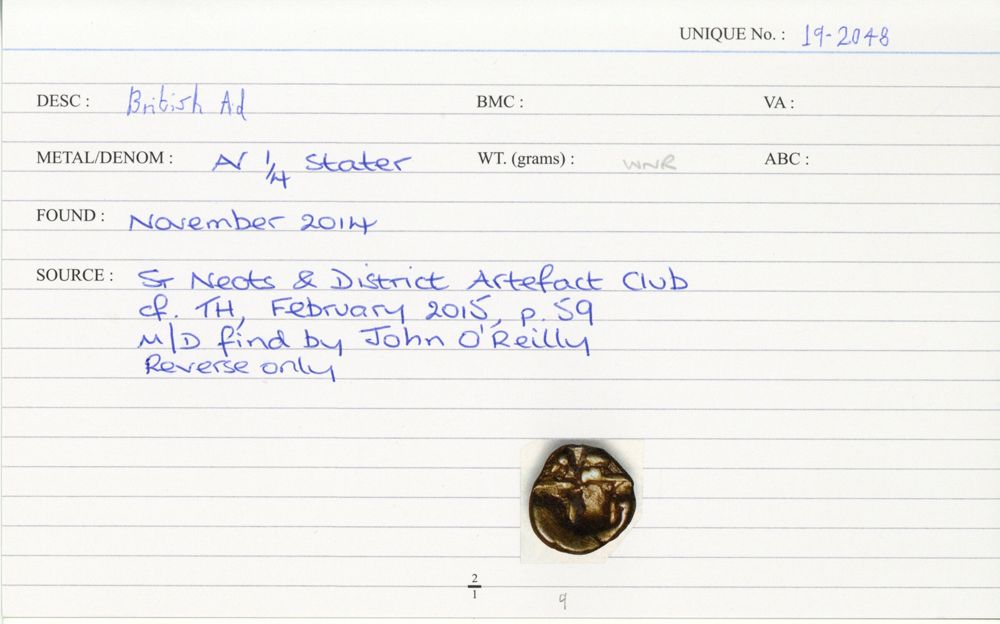 UNIQUE No. : 19-2048
DESC : British Ad BMC : VA :
METAL/DENOM : AV 1/4 Stater WT. (grams) : WNR ABC :
FOUND : November 2014
SOURCE : St Neots & District Artefact Club
cf. TH, February 2015, p. 59
M/D find by John O'Reilly
Reverse only
2/1
9